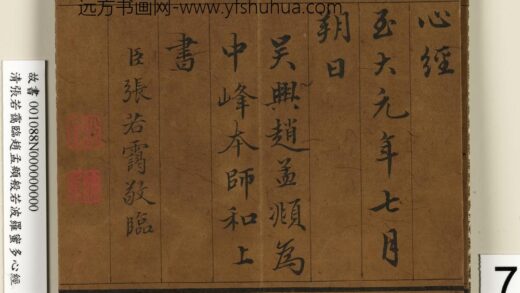 远方书画网-www.yfshuhua.com
心經
至大元年七月
朔日
吴興趙孟頫為
中峰本師和上
書
臣張若靄敬臨
故書 001088N000000000
清張若靄臨趙孟頫般若波羅蜜多心經
7